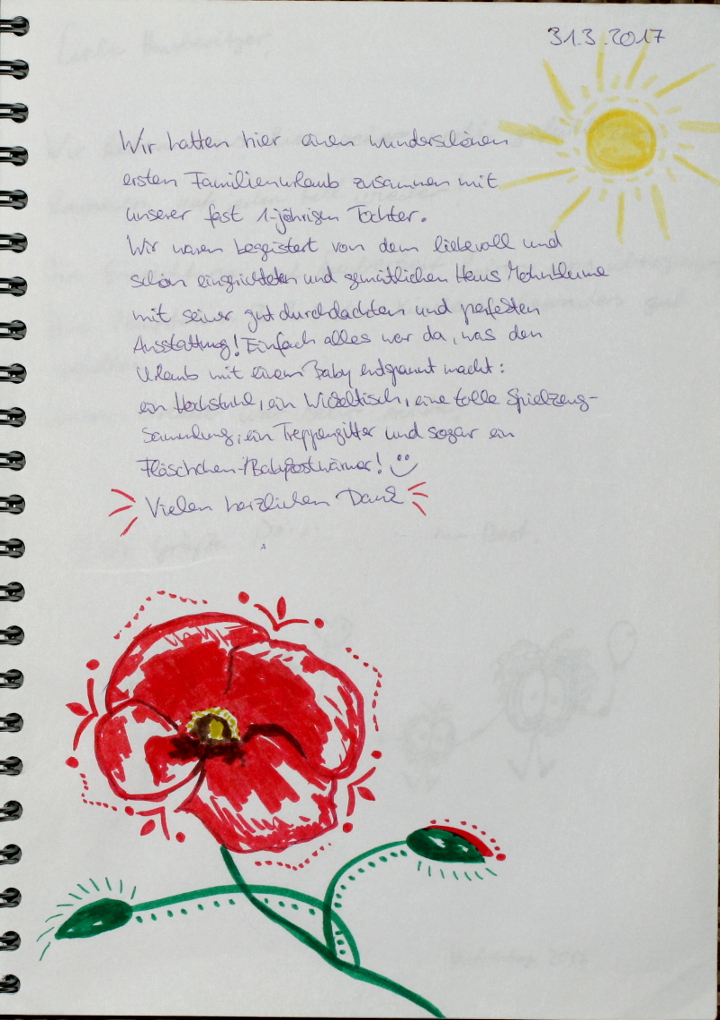 31.3.2017
Wir hatten hier einen wunderschönen
ersten Familienurlaub zusammen mit
unserer fast 1-jährigen Tochter.
Wir waren begeistert von dem liebevoll und
schön eingerichteten und gemütlichen Haus Mohnblume
mit seiner gut durchdachten und perfekten
Ausstattung! Einfach alles war da, was den
Urlaub mit einem Baby entspannt macht:
ein Hochstuhl, ein Wickeltisch, eine tolle Spielzeug-
Sammlung, ein Treppengitter und sogar ein
Fläschchen-/Babykostwärmer!
Vielen herzlichen Dank